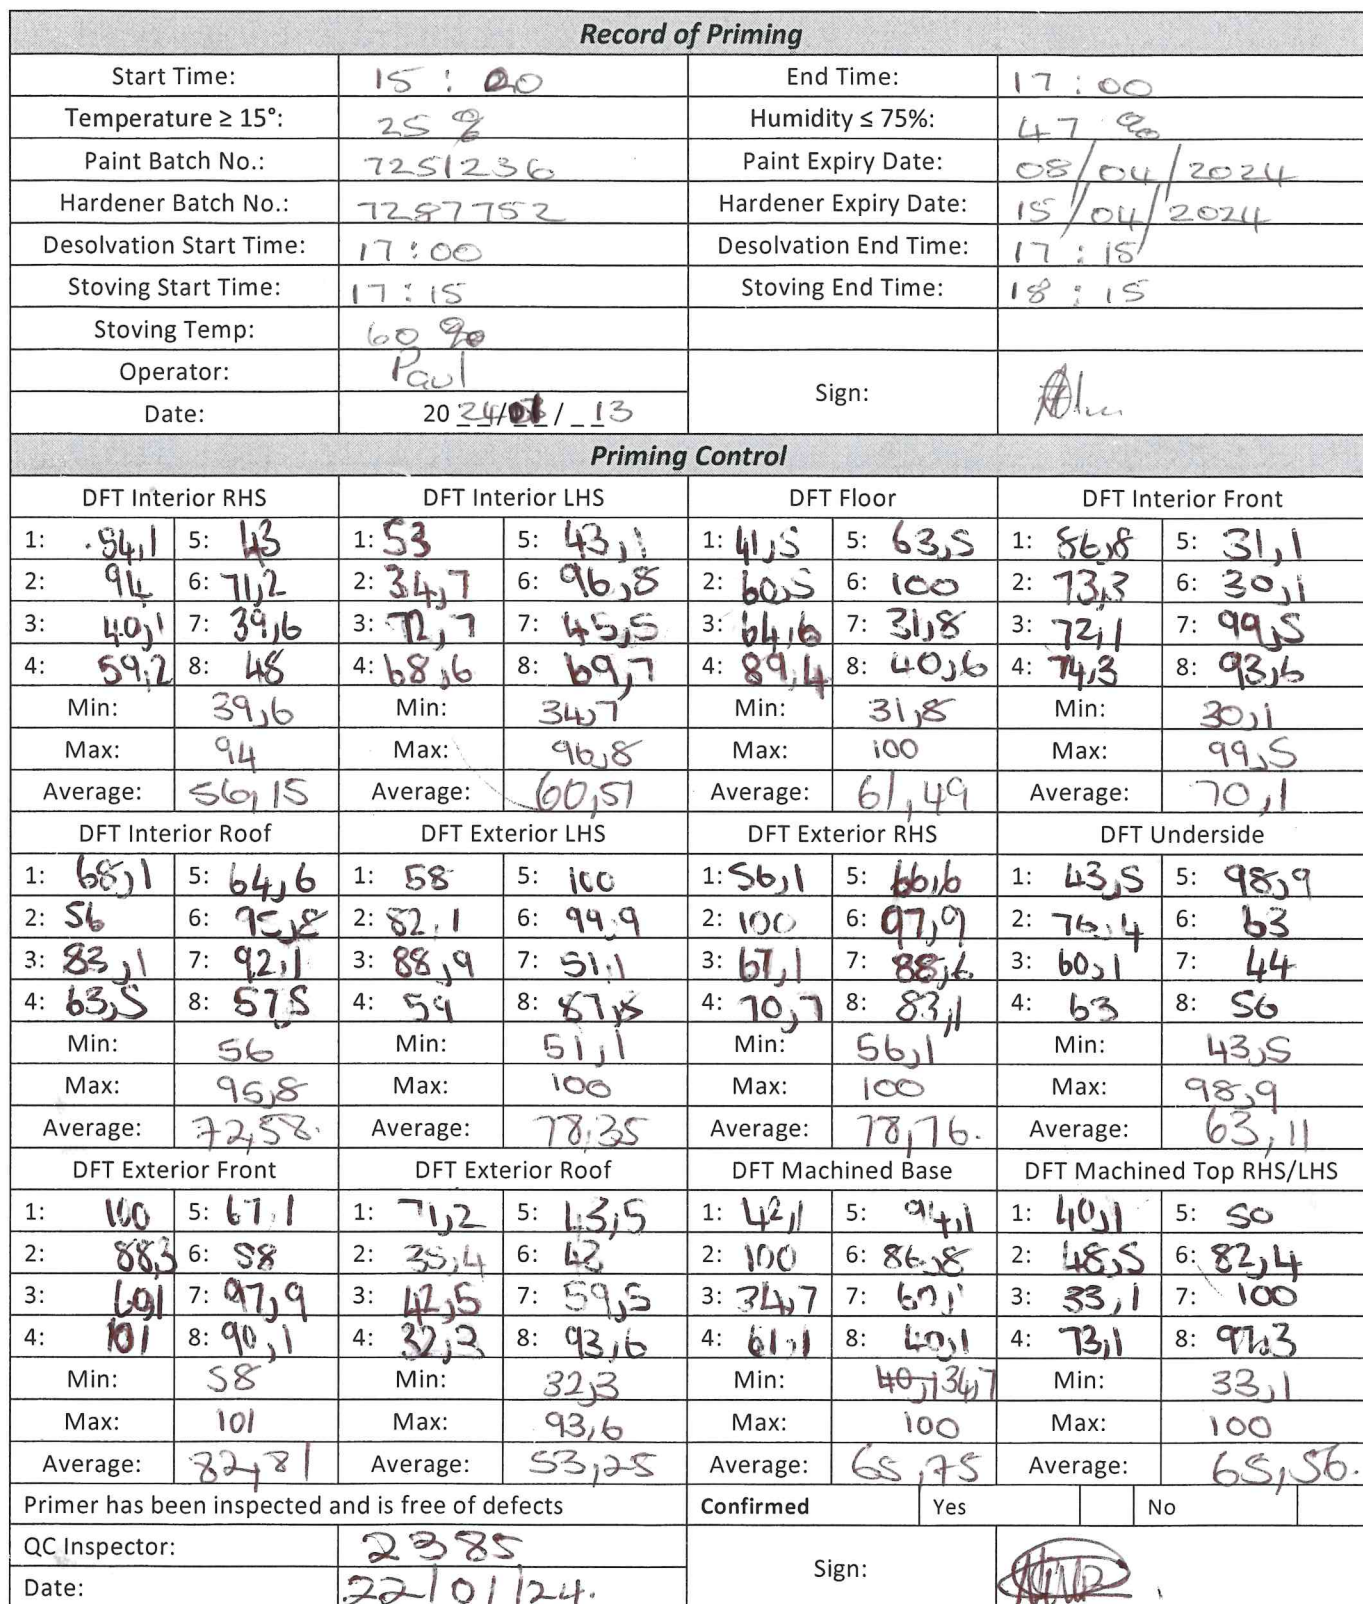 Record of Priming
Start Time: 15 : 20 End Time: 17 : 00
Temperature ≥ 15°: 25 % Humidity ≤ 75%: 47 %
Paint Batch No.: 7251236 Paint Expiry Date: 08/04/2024
Hardener Batch No.: 7287752 Hardener Expiry Date: 15/04/2024
Desolvation Start Time: 17:00 Desolvation End Time: 17:15
Stoving Start Time: 17:15 Stoving End Time: 18:15
Stoving Temp: 60 %
Operator: Paul Sign:
Date: 20 24/01/ 13
Priming Control
DFT Interior RHS DFT Interior LHS DFT Floor DFT Interior Front
1: 54,1 5: 43 1: 53 5: 43,1 1: 41,5 5: 63,5 1: 86,8 5: 31,1
2: 94 6: 71,2 2: 34,7 6: 96,8 2: 60,5 6: 100 2: 73,3 6: 30,1
3: 40,1 7: 39,6 3: 72,7 7: 45,5 3: 64,6 7: 31,8 3: 72,1 7: 99,5
4: 59,2 8: 48 4: 68,6 8: 69,7 4: 89,4 8: 40,6 4: 74,3 8: 93,6
Min: 39,6 Min: 34,7 Min: 31,8 Min: 30,1
Max: 94 Max: 96,8 Max: 100 Max: 99,5
Average: 56,15 Average: 60,51 Average: 61,49 Average: 70,1
DFT Interior Roof DFT Exterior LHS DFT Exterior RHS DFT Underside
1: 68,1 5: 64,6 1: 58 5: 100 1: 56,1 5: 66,6 1: 43,5 5: 98,9
2: 56 6: 95,8 2: 82,1 6: 99,9 2: 100 6: 97,9 2: 76,4 6: 63
3: 83,1 7: 92,1 3: 88,9 7: 51,1 3: 67,1 7: 88,6 3: 60,1 7: 44
4: 63,5 8: 57,5 4: 59 8: 87,8 4: 70,7 8: 83,1 4: 63 8: 56
Min: 56 Min: 51,1 Min: 56,1 Min: 43,5
Max: 95,8 Max: 100 Max: 100 Max: 98,9
Average: 72,58. Average: 78,35 Average: 78,76. Average: 63,11
DFT Exterior Front DFT Exterior Roof DFT Machined Base DFT Machined Top RHS/LHS
1: 100 5: 67,1 1: 71,2 5: 43,5 1: 42,1 5: 94,1 1: 40,1 5: 50
2: 88,3 6: 58 2: 35,4 6: 48 2: 100 6: 86,8 2: 48,5 6: 82,4
3: 60,1 7: 97,9 3: 42,5 7: 59,5 3: 34,7 7: 67,1 3: 33,1 7: 100
4: 101 8: 90,1 4: 32,3 8: 93,6 4: 61,1 8: 40,1 4: 73,1 8: 97,3
Min: 58 Min: 32,3 Min: 40,1 34,7 Min: 33,1
Max: 101 Max: 93,6 Max: 100 Max: 100
Average: 82,81 Average: 53,25 Average: 65,75 Average: 65,56.
Primer has been inspected and is free of defects Confirmed Yes No
QC Inspector: 2385 Sign:
Date: 22/01/24.